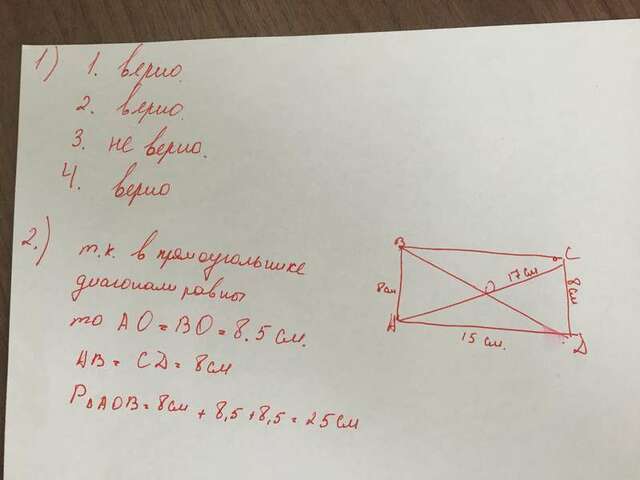 1) 1. верно.
2. верно.
3. не верно.
4. верно
2.) т.к. в прямоугольнике
диагонали равны
то AO = BO = 8.5 см.
AB = CD = 8 см
P∆AOB = 8 см + 8,5 + 8,5 = 25 см
B
C
8см
O
17 см
8
A
15 см.
D